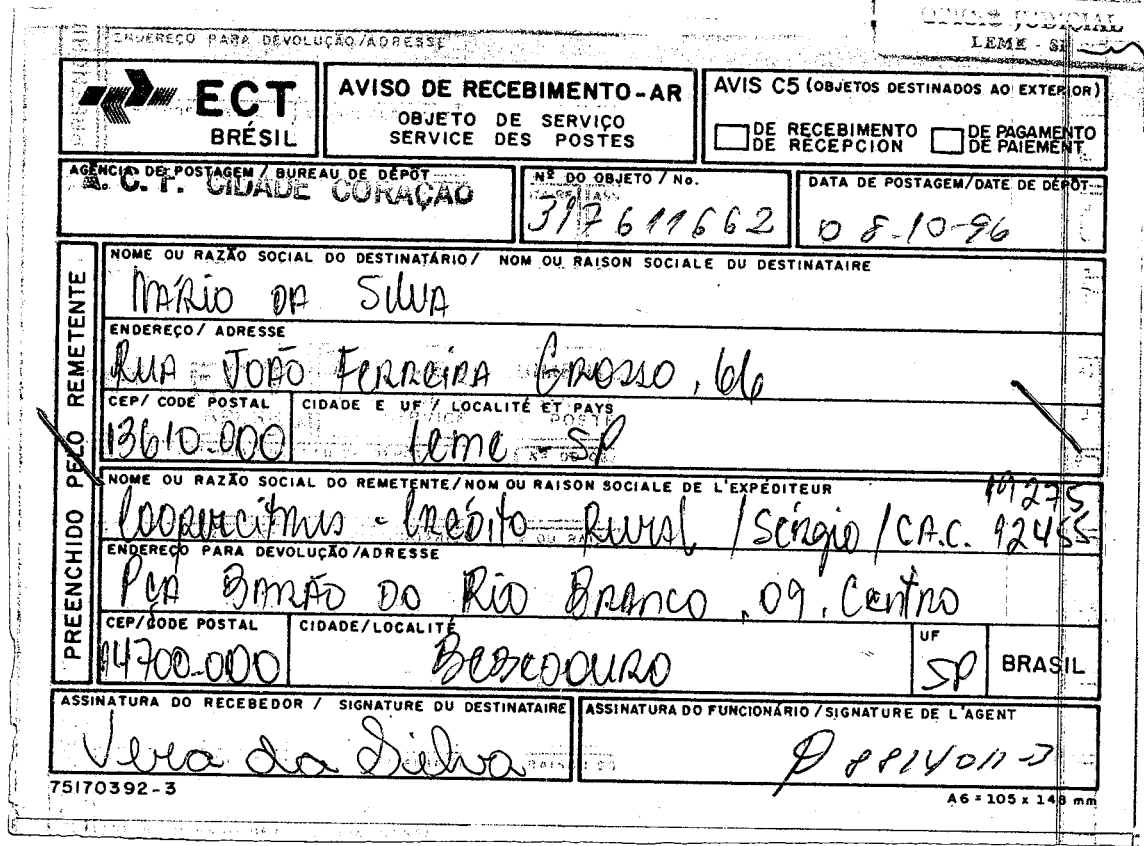 JUDICIAL
LEME - SP
ENDEREÇO PARA DEVOLUÇÃO/ADRESSE
ECT
BRÉSIL
AVISO DE RECEBIMENTO-AR
OBJETO DE SERVIÇO
SERVICE DES POSTES
AVIS C5 (OBJETOS DESTINADOS AO EXTERIOR)
DE RECEBIMENTO
DE RECEPCION
DE PAGAMENTO
DE PAIEMENT
AGÊNCIA DE POSTAGEM / BUREAU DE DÉPÔT
A. C. F. CIDADE CORAÇÃO
Nº DO OBJETO / No.
317611662
DATA DE POSTAGEM/DATE DE DÉPÔT
08-10-96
PREENCHIDO PELO REMETENTE
NOME OU RAZÃO SOCIAL DO DESTINATÁRIO/ NOM OU RAISON SOCIALE DU DESTINATAIRE
MÁRIO DA SILVA
ENDEREÇO/ ADRESSE
RUA JOÃO FERREIRA GROSSO, 66
CEP/ CODE POSTAL
13610.000
CIDADE E UF / LOCALITÉ ET PAYS
Leme - SP
NOME OU RAZÃO SOCIAL DO REMETENTE/NOM OU RAISON SOCIALE DE L'EXPÉDITEUR
19275
Coopercitrus - Crédito Rural / Sérgio / CA.C. 92455
ENDEREÇO PARA DEVOLUÇÃO/ADRESSE
PÇA BARÃO DO RIO BRANCO, 09, Centro
CEP/CODE POSTAL
14700-000
CIDADE/LOCALITÉ
BEBEDOURO
UF
SP
BRASIL
ASSINATURA DO RECEBEDOR / SIGNATURE DU DESTINATAIRE
Vera da Silva
ASSINATURA DO FUNCIONÁRIO/SIGNATURE DE L'AGENT
75170392-3
A6 = 105 x 148 mm